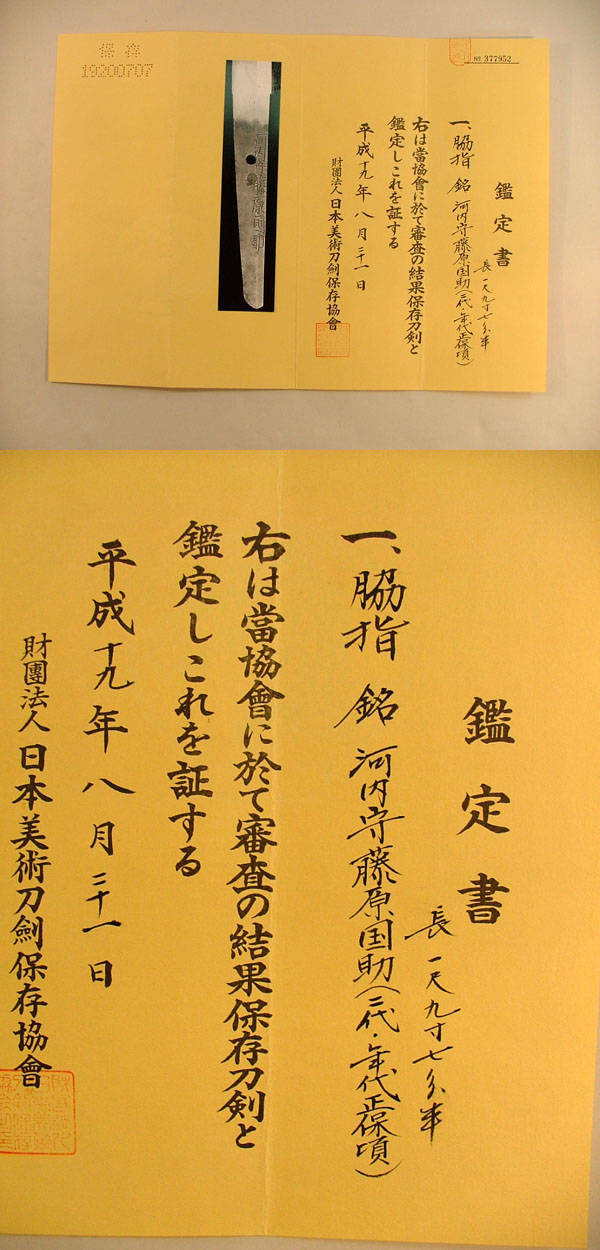 保存
19200707
№ 377952
鑑定書
長 一尺九寸七分半
一、脇指 銘 河内守藤原国助(二代・年代正保頃)
右は當協會に於て審査の結果保存刀剣と
鑑定しこれを証する
平成十九年八月二十一日
財團法人日本美術刀劍保存協會
河内守藤原国助
鑑定書
長 一尺九寸七分半
一、脇指 銘 河内守藤原国助(二代・年代正保頃)
右は當協會に於て審査の結果保存刀剣と
鑑定しこれを証する
平成十九年八月二十一日
財團法人日本美術刀劍保存協會